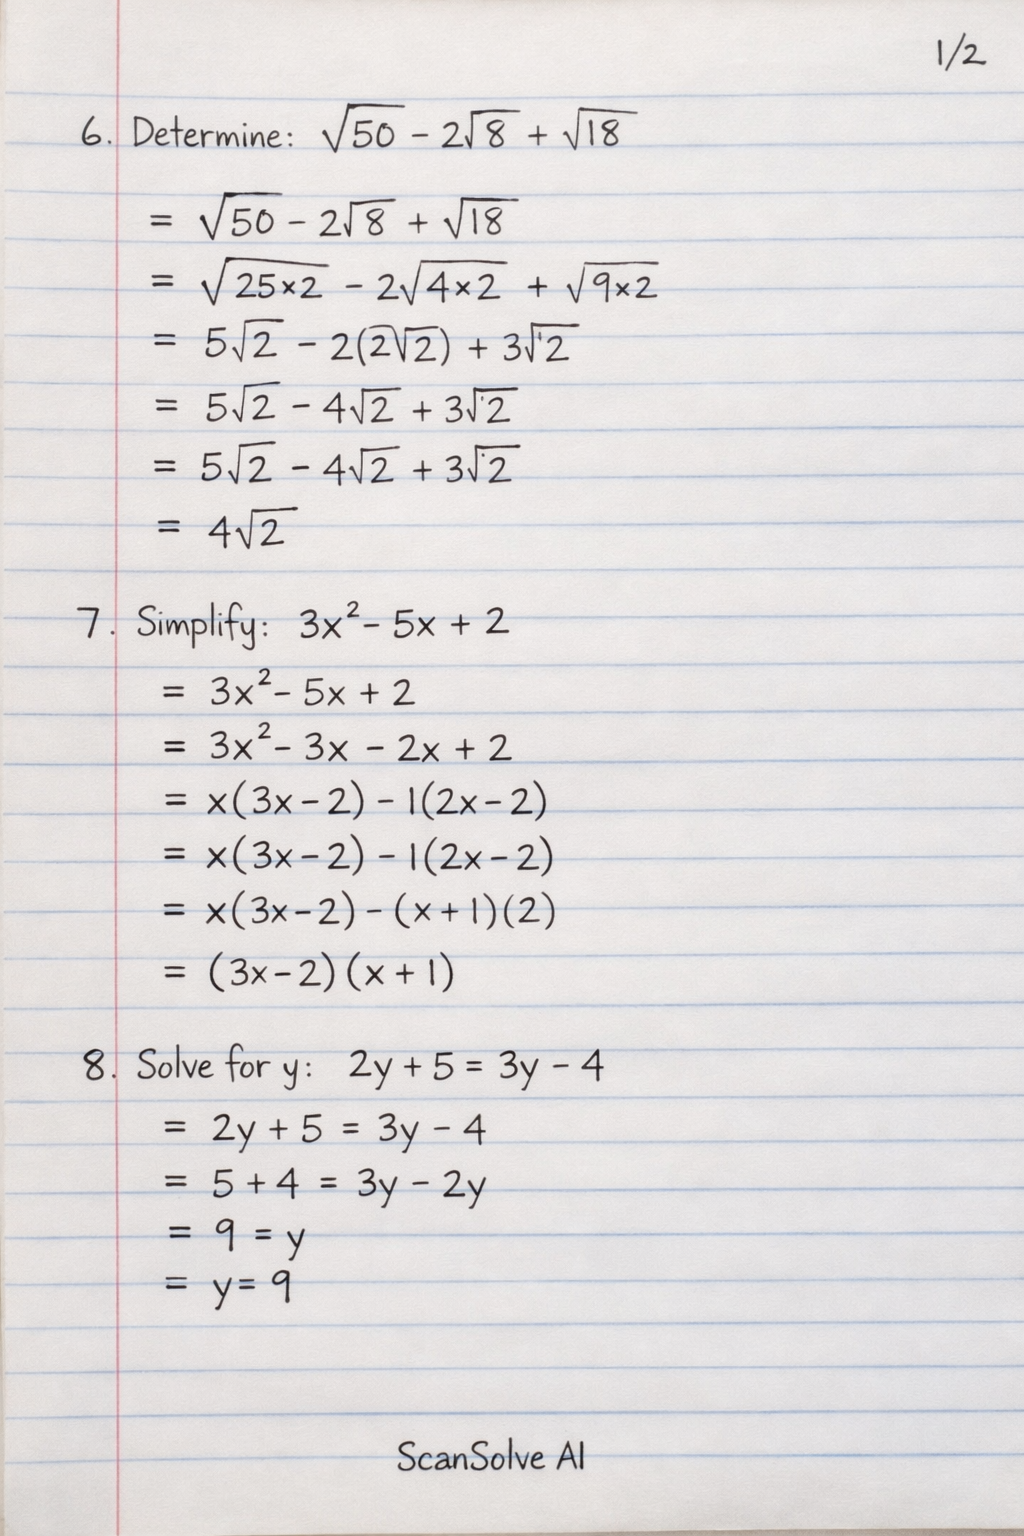 1/2
6. Determine: √50 - 2√8 + √18
= √50 - 2√8 + √18
= √25×2 - 2√4×2 + √9×2
= 5√2 - 2(2√2) + 3√2
= 5√2 - 4√2 + 3√2
= 5√2 - 4√2 + 3√2
= 4√2
7. Simplify: 3x² - 5x + 2
= 3x² - 5x + 2
= 3x² - 3x - 2x + 2
= x(3x - 2) - 1(2x - 2)
= x(3x - 2) - 1(2x - 2)
= x(3x - 2) - (x + 1)(2)
= (3x - 2)(x + 1)
8. Solve for y: 2y + 5 = 3y - 4
= 2y + 5 = 3y - 4
= 5 + 4 = 3y - 2y
= 9 = y
= y = 9
ScanSolve AI